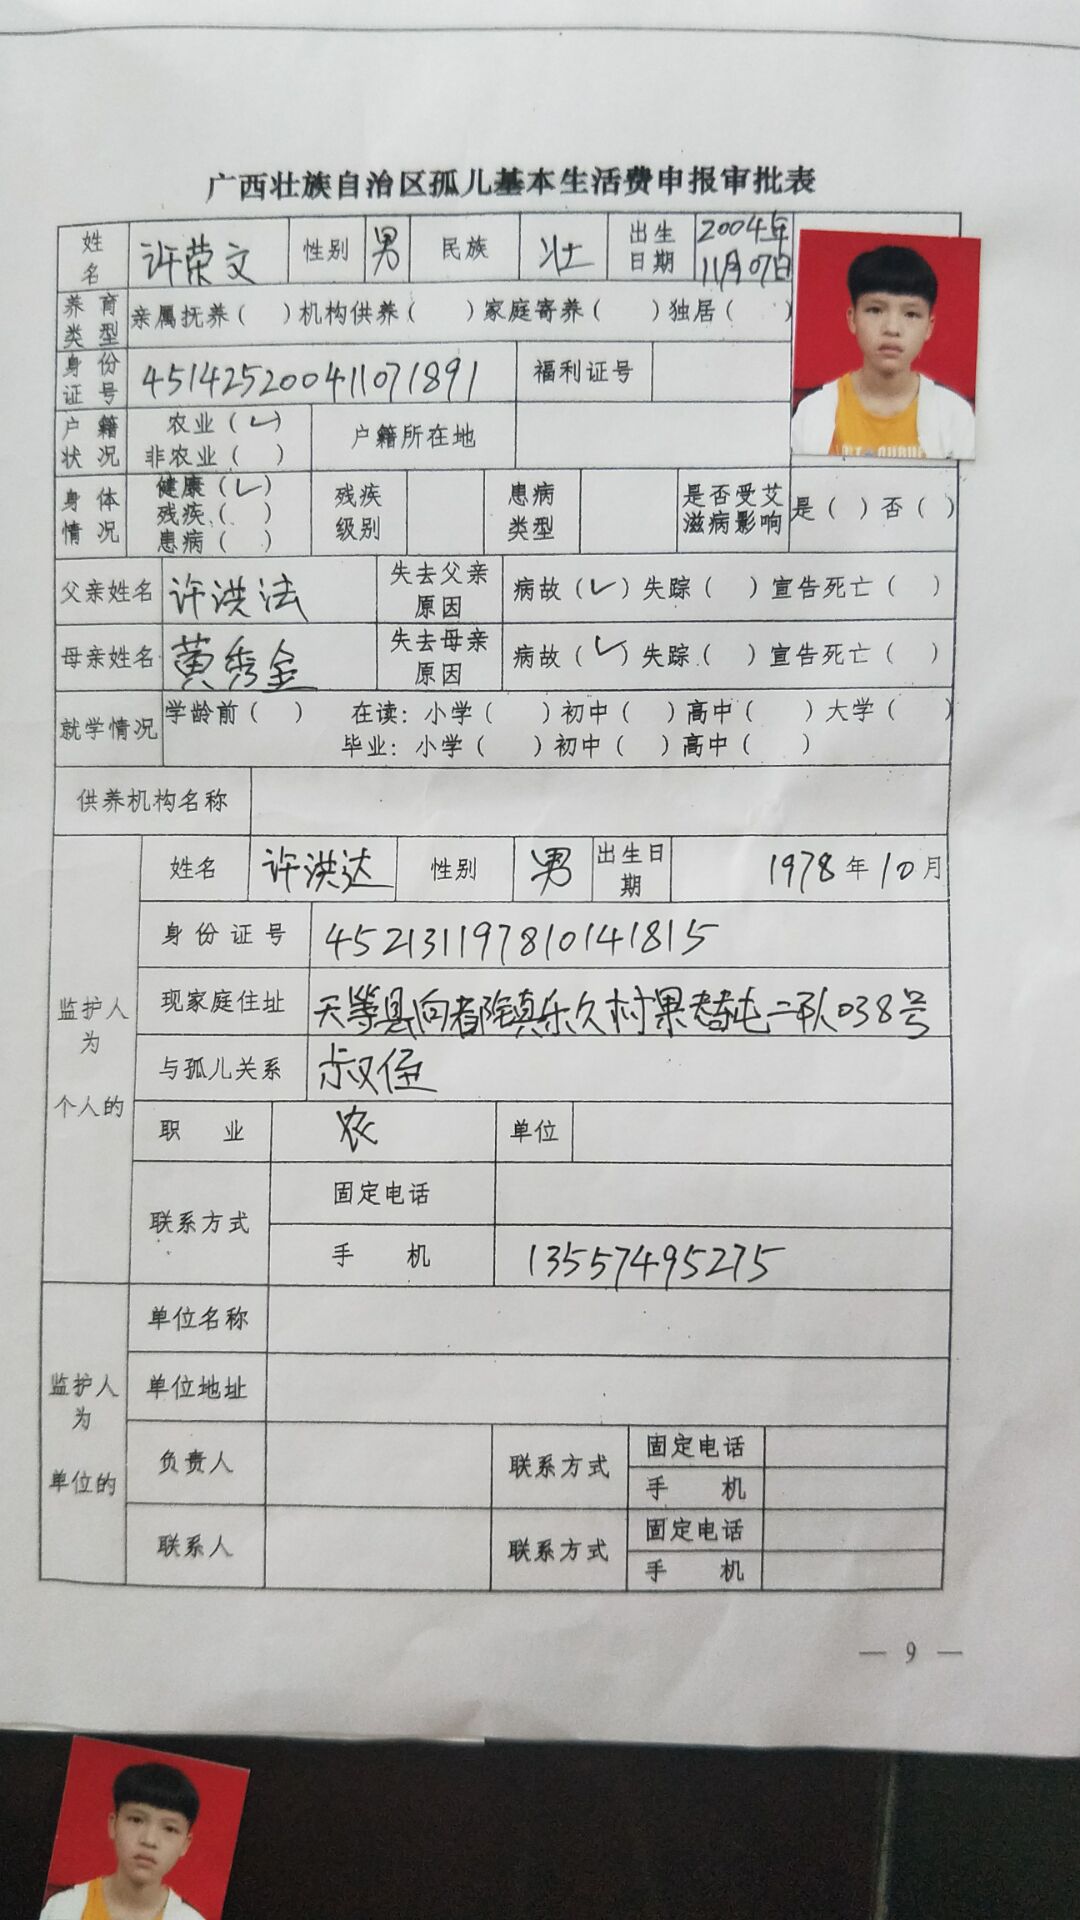 广西壮族自治区孤儿基本生活费申报审批表
姓名 许荣文 性别 男 民族 壮 出生日期 2004年11月07日
养育类型 亲属抚养（ ）机构供养（ ）家庭寄养（ ）独居（ ）
身份证号 451425200411071891 福利证号
户籍状况 农业（✓） 非农业（ ） 户籍所在地
身体情况 健康（✓） 残疾（ ） 患病（ ） 残疾级别 患病类型 是否受艾滋病影响 是（ ）否（ ）
父亲姓名 许洪法 失去父亲原因 病故（✓）失踪（ ）宣告死亡（ ）
母亲姓名 黄秀金 失去母亲原因 病故（✓）失踪（ ）宣告死亡（ ）
就学情况 学龄前（ ） 在读：小学（ ）初中（ ）高中（ ）大学（ ）
毕业：小学（ ）初中（ ）高中（ ）
供养机构名称
监护人为个人的
姓名 许洪达 性别 男 出生日期 1978年10月
身份证号 452131197810141815
现家庭住址 天等县向都镇乐久村果替屯二队038号
与孤儿关系 叔侄
职业 农 单位
联系方式 固定电话
手机 13557495275
监护人为单位的
单位名称
单位地址
负责人 联系方式 固定电话
手机
联系人 联系方式 固定电话
手机
— 9 —